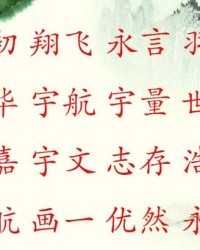 翔飞 永言 羽
华 宇航 宇量 世
嘉 宇文 志存 浩
航 画一 优然 永